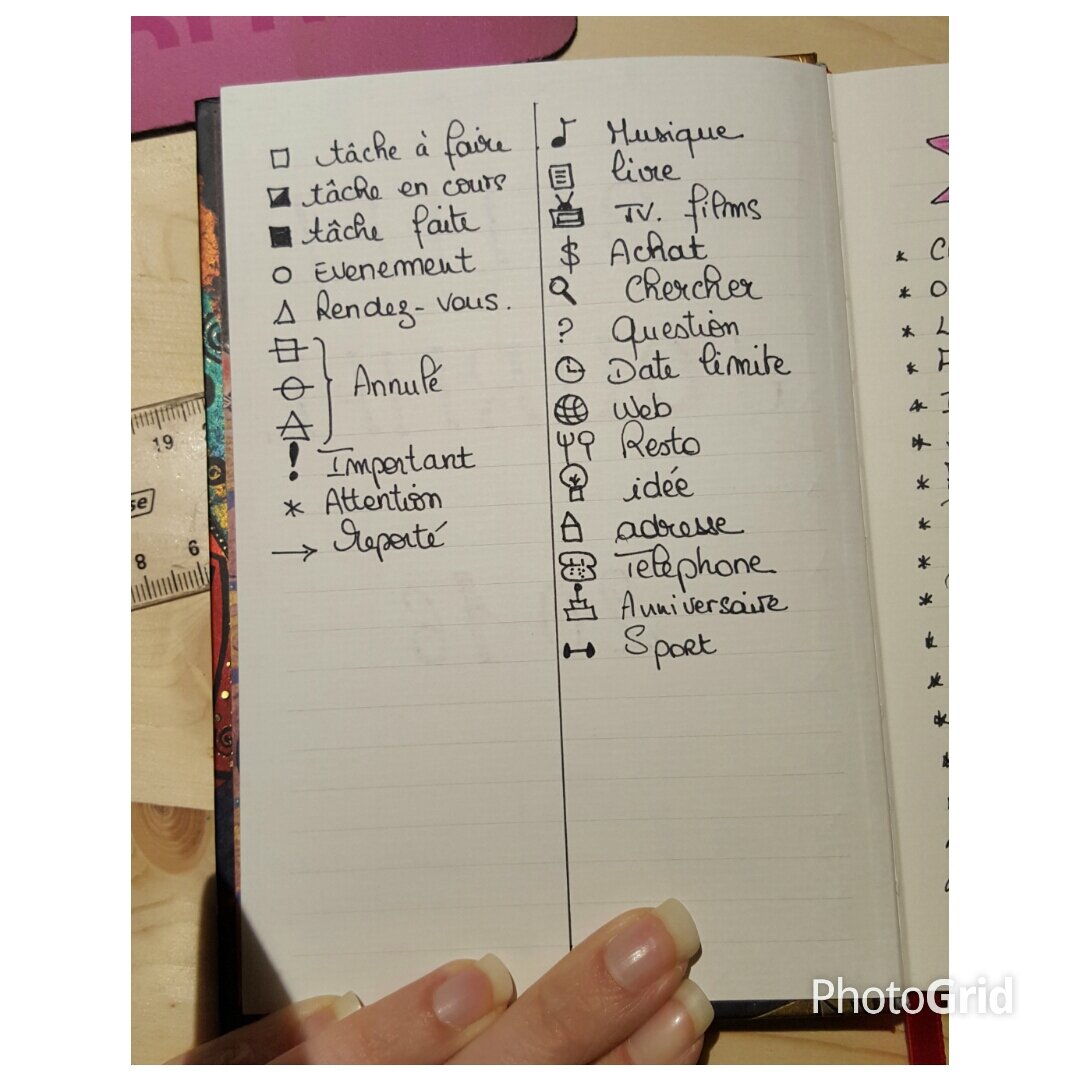 tâche à faire
tâche en cours
tâche faite
Evenement
Rendez-vous.
Annulé
! Important
* Attention
→ Reporté
Musique
livre
TV. films
$ Achat
Chercher
? Question
Date limite
Web
Resto
idée
adresse
Telephone
Anniversaire
Sport
19
se
8 6
PhotoGrid